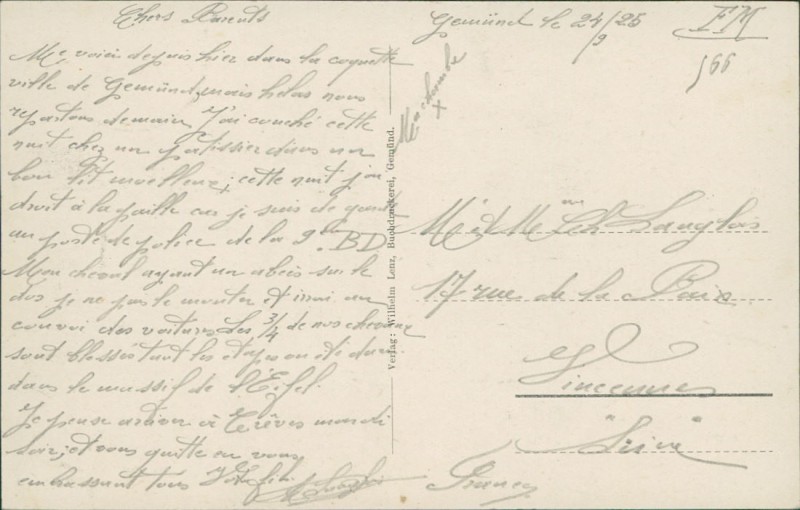 Chers Parents
Me voici depuis hier dans la coquette
ville de Gemünd, mais helas nous
repartons demain. J'ai couché cette
nuit chez un patissier dans un
bon lit moelleux; cette nuit j'ai
droit à la paille car je suis de garde
au poste de police de la 9e BD
Mon cheval ayant un abcès sur le
dos je ne puis le monter et irai au
convoi des voitures. Les 3/4 de nos chevaux
sont blessés tant les étapes ont été dures
dans le massif de l'Eifel.
Je pense arriver à Trèves mardi
soir, et vous quitte en vous
embrassant tous Votre fils
Langlois
Gemünd le 24/9 25
FM
166
Verlag: Wilhelm Lenz, Buchdruckerei, Gemünd.
M et Mme Ch Langlois
17 rue de la Paix
Vincennes
"Seine"
France